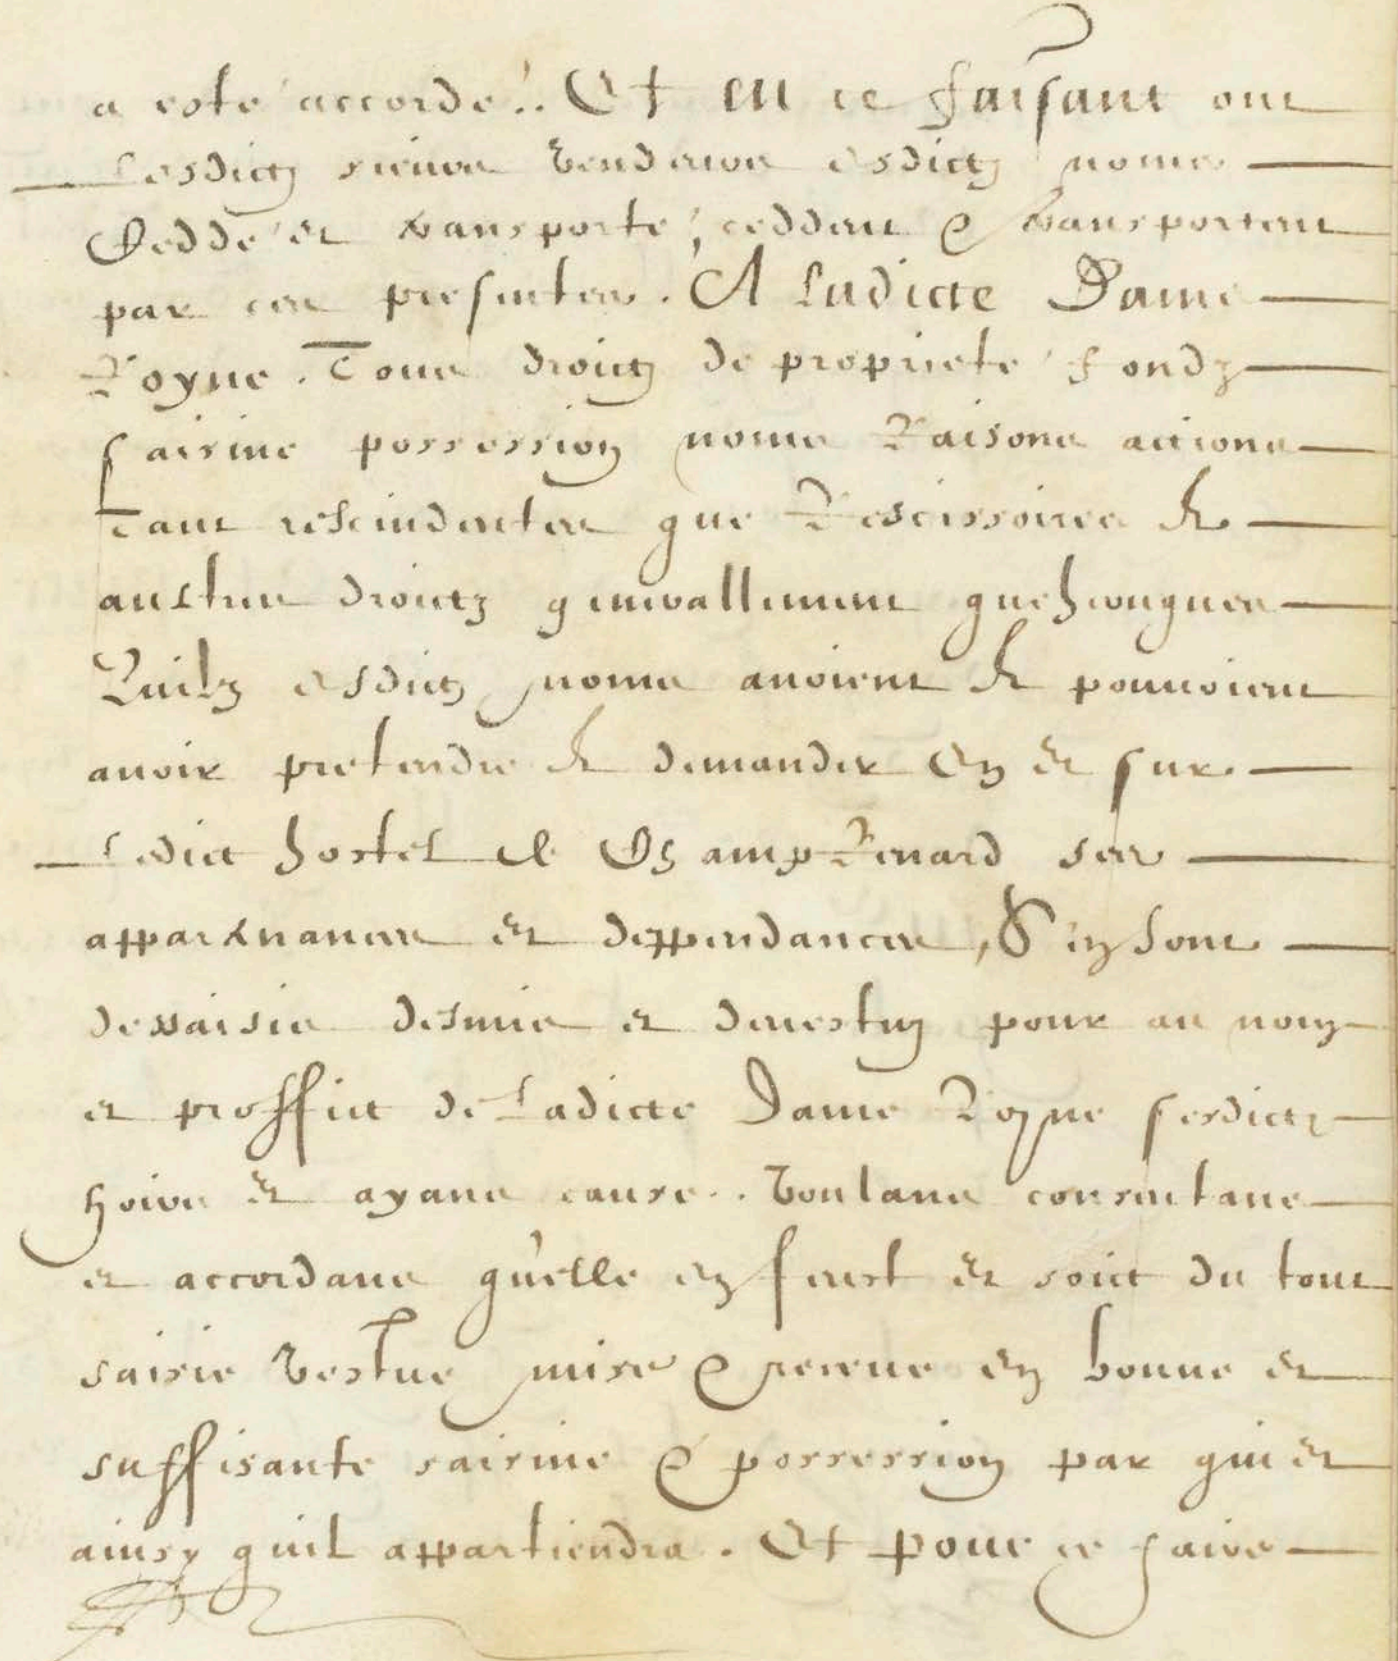 a esté accordé .. Et en ce faisant ont
Lesdictz sieurs vendeurs esdictz noms
Ceddé et transporté, ceddent & transportent
par ces presentes . A Ladicte Dame
Royne . Tous droictz de propriete fondz
saisine possession noms Raisons actions
Tant rescindentes que Rescissoires Et
aultres droictz generallement quelzconques
Quilz esdictz noms avoient Et pouvoient
avoir pretendre Et demander En Et sur
Ledict hostel de Champ Renard ses
appartenances et deppendances, S'en sont
dessaisis desmis et devestuz pour au nom
et proffict de Ladicte Dame Royne sesdictz
hoirs Et ayans cause .. Voulans consentans
et accordans qu'elle en feust Et soict du tout
saisie vestue mise & receue en bonne et
suffisante saisine & possession par qui Et
ainsy quil appartiendra . Et pour ce faire